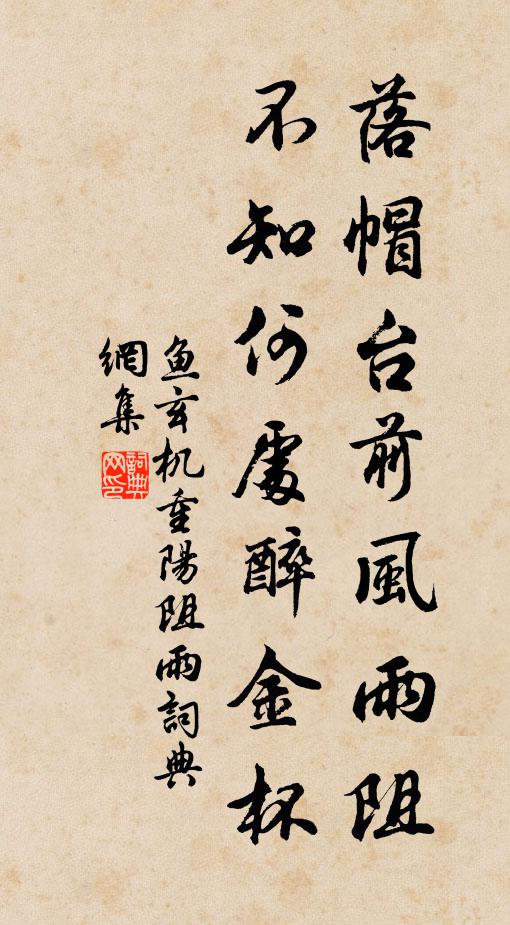 落帽台前風雨阻
不知何處醉金杯
魚玄机重陽阻雨詞典
網集
詞典網印